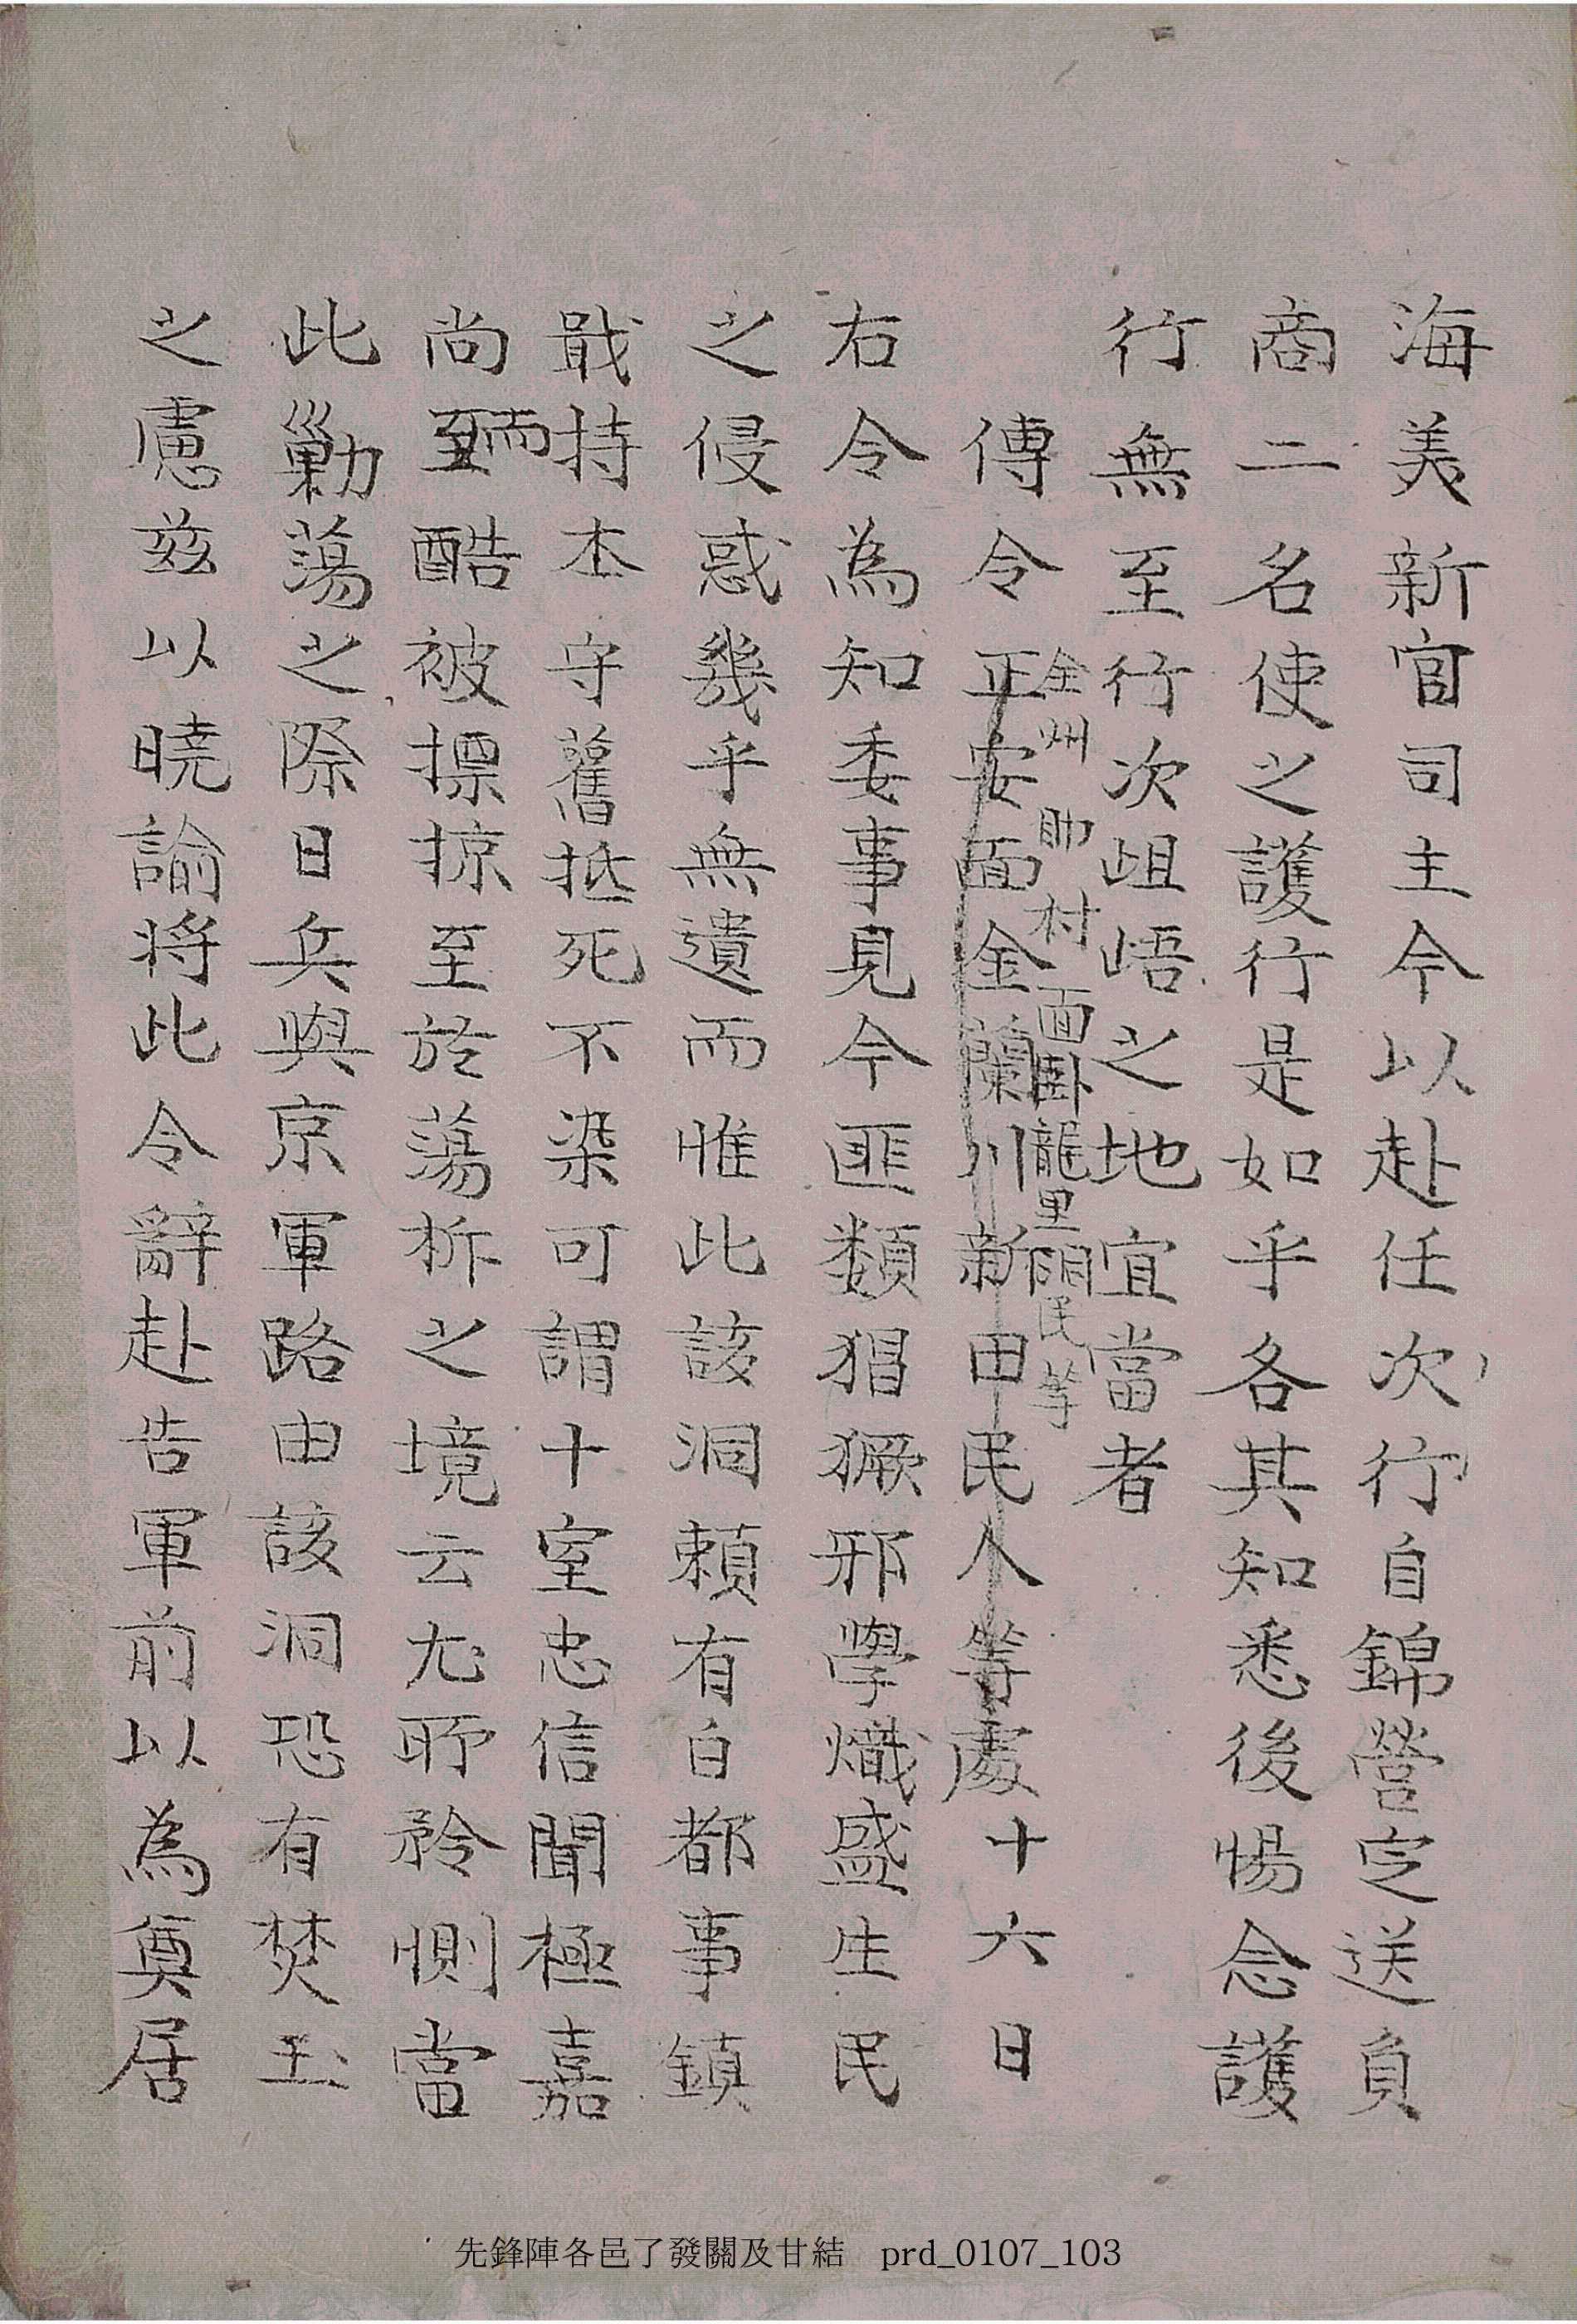 海美新官司主今以赴任次行自錦營定送負
商二名使之護行是如乎各其知悉後惕念護
行無至行次岨峿之地宜當者
全州 助村面卧龍里 民等
傳令正安面金蘭川新田民人等處十六日
右令為知委事見今匪類猖獗邪學熾盛生民
之侵惑幾乎無遺而惟此該洞頼有白都事鎮
戢持本守舊抵死不染可謂十室忠信聞極嘉
尚至而酷被摽掠至於蕩柝之境云尤所矜惻當
此勦蕩之際日兵與京軍路由該洞恐有焚玉
之慮玆以曉諭將此令辭赴告軍前以為奠居
先鋒陣各邑了發關及甘結 prd_0107_103